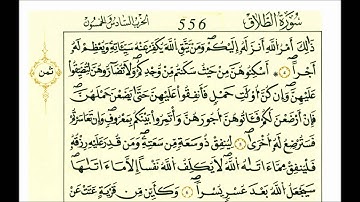 سُورَةُ الطَّلَاقِ 556 الحزب السادس والخمسون
ذَٰلِكَ أَمْرُ اللَّهِ أَنزَلَهُ إِلَيْكُمْ وَمَن يَتَّقِ اللَّهَ يُكَفِّرْ عَنْهُ سَيِّئَاتِهِ وَيُعْظِمْ لَهُ
أَجْراً ٥ أَسْكِنُوهُنَّ مِنْ حَيْثُ سَكَنتُم مِّن وُجْدِكُمْ وَلَا تُضَارُّوهُنَّ لِتُضَيِّقُوا
عَلَيْهِنَّ وَإِن كُنَّ أُوْلَاتِ حَمْلٍ فَأَنفِقُوا عَلَيْهِنَّ حَتَّىٰ يَضَعْنَ حَمْلَهُنَّ
فَإِنْ أَرْضَعْنَ لَكُمْ فَآتُوهُنَّ أُجُورَهُنَّ وَأْتَمِرُوا بَيْنَكُم بِمَعْرُوفٍ وَإِن تَعَاسَرْتُمْ
فَسَتُرْضِعُ لَهُ أُخْرَىٰ ٦ لِيُنفِقْ ذُو سَعَةٍ مِّن سَعَتِهِ وَمَن قُدِرَ عَلَيْهِ رِزْقُهُ
فَلْيُنفِقْ مِمَّا ءَاتَاهُ اللَّهُ لَا يُكَلِّفُ اللَّهُ نَفْساً إِلَّا مَا ءَاتَاهَا
سَيَجْعَلُ اللَّهُ بَعْدَ عُسْرٍ يُسْراً ٧ وَكَأَيِّن مِّن قَرْيَةٍ عَتَتْ عَنْ
ثمن